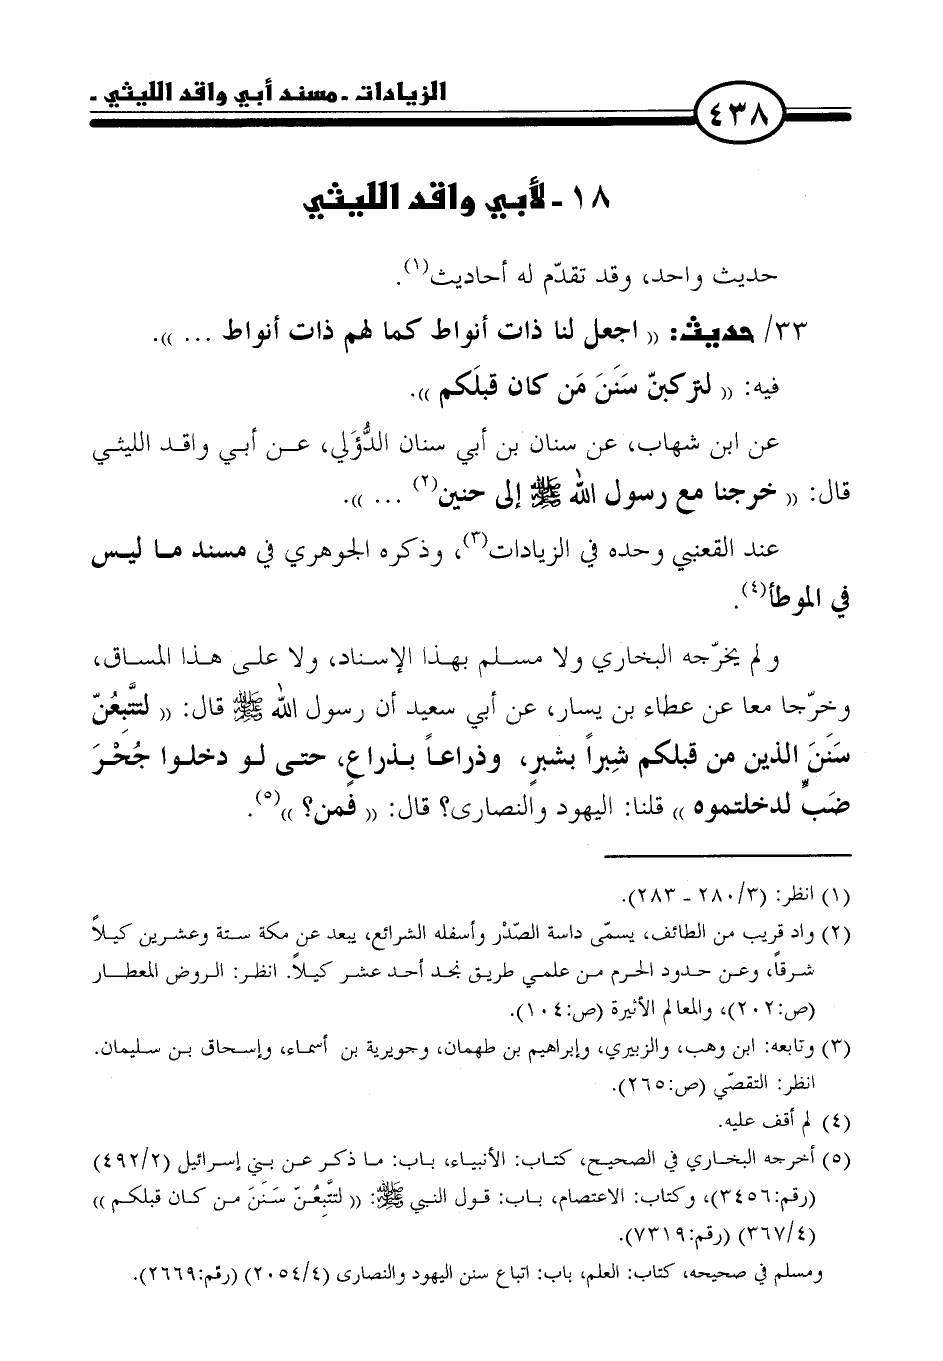 الزيادات ـ مسند أبي واقد الليثي ـ
٤٣٨
١٨ ـ لأبي واقد الليثي
حديث واحد، وقد تقدّم له أحاديث(١).
٣٣/ حديث: « اجعل لنا ذات أنواط كما لهم ذات أنواط ... ».
فيه: « لتركبنّ سَنَنَ مَن كان قبلَكم ».
عن ابن شهاب، عن سنان بن أبي سنان الدُّؤَلي، عن أبي واقد الليثي
قال: « خرجنا مع رسول الله ﷺ إلى حنين(٢) ... ».
عند القعنبي وحده في الزيادات(٣)، وذكره الجوهري في مسند ما ليس
في الموطأ(٤).
ولم يخرّجه البخاري ولا مسلم بهذا الإسناد، ولا على هذا المساق،
وخرّجا معا عن عطاء بن يسار، عن أبي سعيد أن رسول الله ﷺ قال: « لتتَّبِعُنّ
سَنَنَ الذين من قبلكم شِبراً بشبرٍ، وذراعاً بذراعٍ، حتى لو دخلوا جُحْرَ
ضَبٍّ لدخلتموه » قلنا: اليهود والنصارى؟ قال: « فمن؟ »(٥).
(١) انظر: (٢٨٠/٣ ـ ٢٨٣).
(٢) واد قريب من الطائف، يسمّى داسة الصّدْر وأسفله الشرائع، يبعد عن مكة ستة وعشرين كيلاً
شرقاً، وعن حدود الحرم من علمي طريق نجد أحد عشر كيلاً. انظر: الروض المعطار
(ص:٢٠٢)، والمعالم الأثيرة (ص:١٠٤).
(٣) وتابعه: ابن وهب، والزبيري، وإبراهيم بن طهمان، وجويرية بن أسماء، وإسحاق بن سليمان.
انظر: التقصّي (ص:٢٦٥).
(٤) لم أقف عليه.
(٥) أخرجه البخاري في الصحيح، كتاب: الأنبياء، باب: ما ذكر عن بني إسرائيل (٤٩٢/٢)
(رقم:٣٤٥٦)، وكتاب: الاعتصام، باب: قول النبي ﷺ: « لتتَّبِعُنّ سَنَنَ من كان قبلكم »
(٣٦٧/٤) (رقم:٧٣١٩).
ومسلم في صحيحه، كتاب: العلم، باب: اتباع سنن اليهود والنصارى (٢٠٥٤/٤) (رقم:٢٦٦٩).